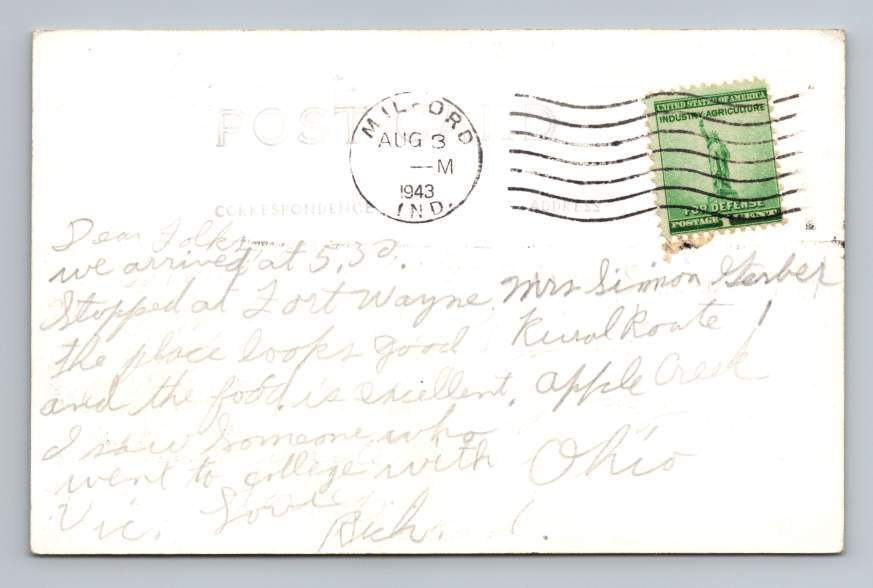 POST CARD
MILFORD
AUG 3
—M
1943
IND.
UNITED STATES OF AMERICA
INDUSTRY-AGRICULTURE
FOR DEFENSE
POSTAGE 1 CENT
CORRESPONDENCE
ADDRESS
Dear Folks
we arrived at 5,30.
Stopped at Fort Wayne
the place looks good
and the food is excellent.
I saw someone who
went to college with
Vic. Love
Mrs Simon Gerber
Rural Route 1
Apple Creek
Ohio